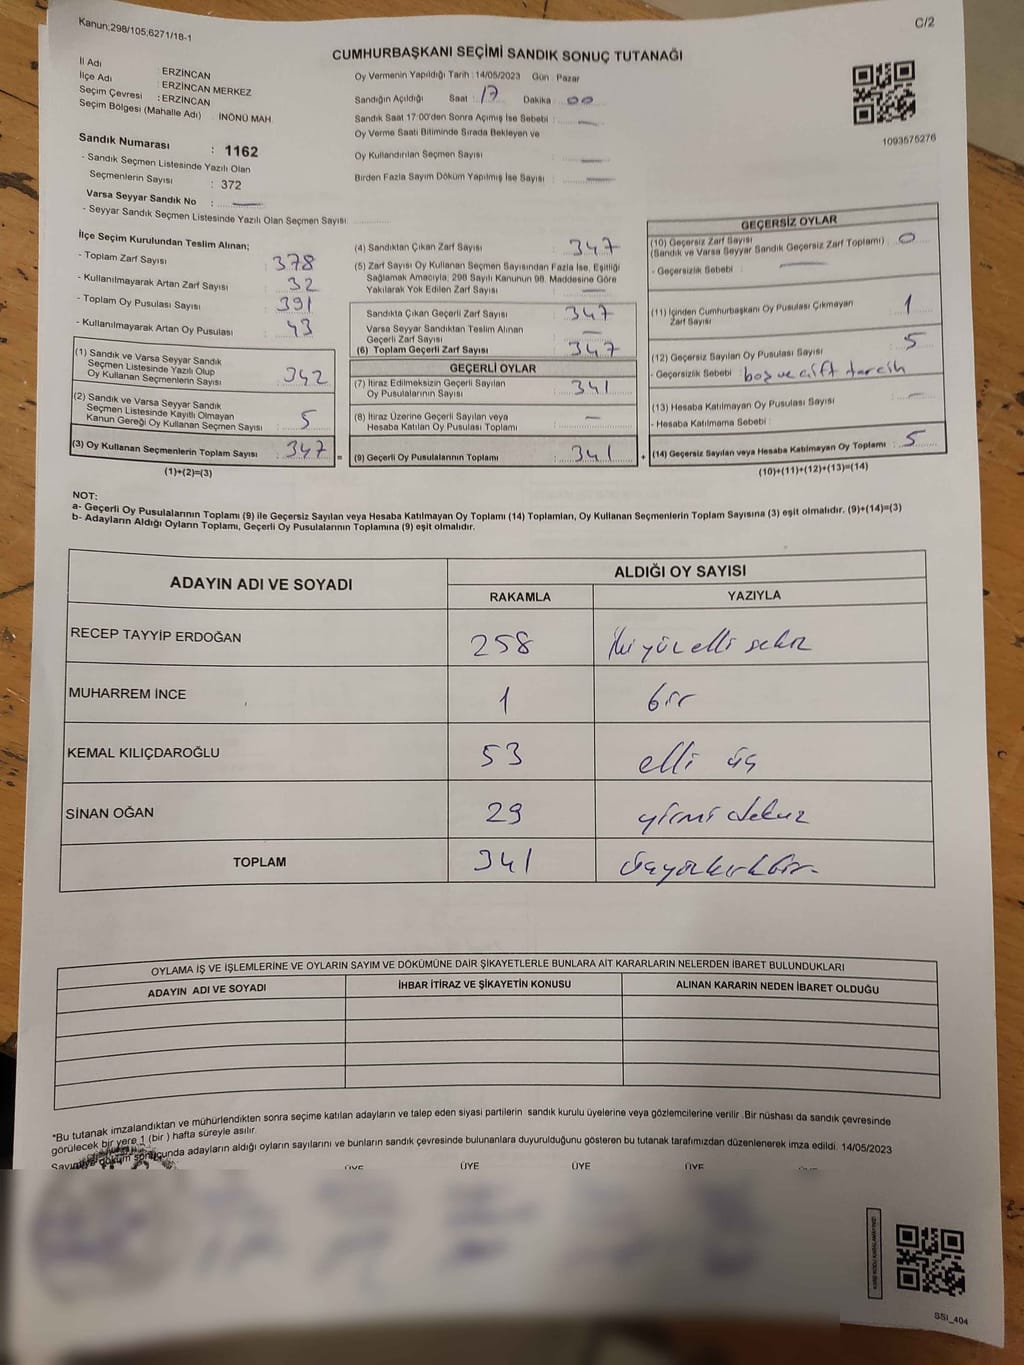 Kanun;298/105,6271/18-1
C/2
CUMHURBAŞKANI SEÇİMİ SANDIK SONUÇ TUTANAĞI
İl Adı ERZİNCAN
İlçe Adı : ERZİNCAN MERKEZ
Seçim Çevresi : ERZİNCAN
Seçim Bölgesi (Mahalle Adı) İNÖNÜ MAH.
Sandık Numarası : 1162
- Sandık Seçmen Listesinde Yazılı Olan
Seçmenlerin Sayısı : 372
Varsa Seyyar Sandık No : —
- Seyyar Sandık Seçmen Listesinde Yazılı Olan Seçmen Sayısı
Oy Vermenin Yapıldığı Tarih : 14/05/2023 Gün : Pazar
Sandığın Açıldığı Saat : 17 Dakika : 00
Sandık Saat 17:00'den Sonra Açımış İse Sebebi : —
Oy Verme Saati Bitiminde Sırada Bekleyen ve
Oy Kullandırılan Seçmen Sayısı : —
Birden Fazla Sayım Döküm Yapılmış İse Sayısı : —
1093575276
İlçe Seçim Kurulundan Teslim Alınan;
- Toplam Zarf Sayısı : 378
- Kullanılmayarak Artan Zarf Sayısı : 32
- Toplam Oy Pusulası Sayısı : 391
- Kullanılmayarak Artan Oy Pusulası : 43
(1) Sandık ve Varsa Seyyar Sandık
Seçmen Listesinde Yazılı Olup
Oy Kullanan Seçmenlerin Sayısı : 342
(2) Sandık ve Varsa Seyyar Sandık
Seçmen Listesinde Kayıtlı Olmayan
Kanun Gereği Oy Kullanan Seçmen Sayısı : 5
(3) Oy Kullanan Seçmenlerin Toplam Sayısı : 347
(1)+(2)=(3)
(4) Sandıktan Çıkan Zarf Sayısı : 347
(5) Zarf Sayısı Oy Kullanan Seçmen Sayısından Fazla İse, Eşitliği
Sağlamak Amacıyla; 298 Sayılı Kanunun 98. Maddesine Göre
Yakılarak Yok Edilen Zarf Sayısı : —
Sandıkta Çıkan Geçerli Zarf Sayısı : 347
Varsa Seyyar Sandıktan Teslim Alınan
Geçerli Zarf Sayısı : —
(6) Toplam Geçerli Zarf Sayısı : 347
GEÇERLİ OYLAR
(7) İtiraz Edilmeksizin Geçerli Sayılan
Oy Pusulalarının Sayısı : 341
(8) İtiraz Üzerine Geçerli Sayılan veya
Hesaba Katılan Oy Pusulası Toplamı : —
= (9) Geçerli Oy Pusulalarının Toplamı : 341 +
GEÇERSİZ OYLAR
(10) Geçersiz Zarf Sayısı
(Sandık ve Varsa Seyyar Sandık Geçersiz Zarf Toplamı) : 0
- Geçersizlik Sebebi : —
(11) İçinden Cumhurbaşkanı Oy Pusulası Çıkmayan
Zarf Sayısı : 1
(12) Geçersiz Sayılan Oy Pusulası Sayısı : 5
- Geçersizlik Sebebi : boş ve çift tercih
(13) Hesaba Katılmayan Oy Pusulası Sayısı : —
- Hesaba Katılmama Sebebi :
(14) Geçersiz Sayılan veya Hesaba Katılmayan Oy Toplamı : 5
(10)+(11)+(12)+(13)=(14)
NOT:
a- Geçerli Oy Pusulalarının Toplamı (9) ile Geçersiz Sayılan veya Hesaba Katılmayan Oy Toplamı (14) Toplamları, Oy Kullanan Seçmenlerin Toplam Sayısına (3) eşit olmalıdır. (9)+(14)=(3)
b- Adayların Aldığı Oyların Toplamı, Geçerli Oy Pusulalarının Toplamına (9) eşit olmalıdır.
ADAYIN ADI VE SOYADI
ALDIĞI OY SAYISI
RAKAMLA YAZIYLA
RECEP TAYYİP ERDOĞAN 258 iki yüz elli sekiz
MUHARREM İNCE 1 bir
KEMAL KILIÇDAROĞLU 53 elli üç
SİNAN OĞAN 29 yirmi dokuz
TOPLAM 341 üçyüzkırkbir
OYLAMA İŞ VE İŞLEMLERİNE VE OYLARIN SAYIM VE DÖKÜMÜNE DAİR ŞİKAYETLERLE BUNLARA AİT KARARLARIN NELERDEN İBARET BULUNDUKLARI
ADAYIN ADI VE SOYADI İHBAR İTİRAZ VE ŞİKAYETİN KONUSU ALINAN KARARIN NEDEN İBARET OLDUĞU
*Bu tutanak imzalandıktan ve mühürlendikten sonra seçime katılan adayların ve talep eden siyasi partilerin sandık kurulu üyelerine veya gözlemcilerine verilir .Bir nüshası da sandık çevresinde
görülecek bir yere 1 (bir ) hafta süreyle asılır.
Sayım ve döküm sonucunda adayların aldığı oyların sayılarını ve bunların sandık çevresinde bulunanlara duyurulduğunu gösteren bu tutanak tarafımızdan düzenlenerek imza edildi. 14/05/2023
ÜYE ÜYE ÜYE ÜYE
SSI_404